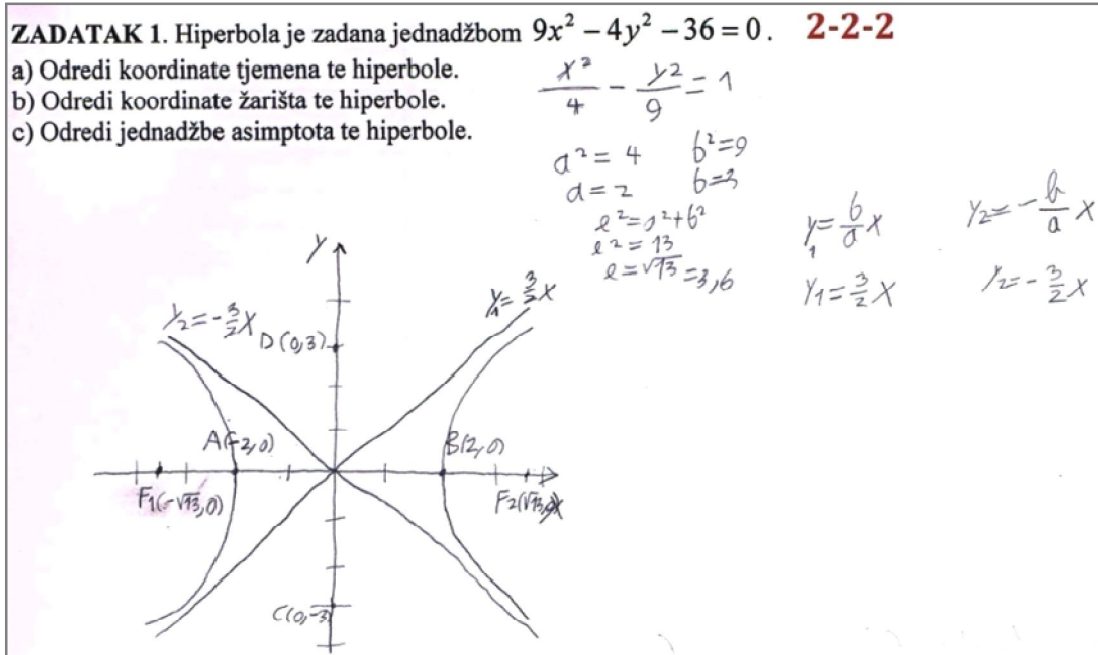 ZADATAK 1. Hiperbola je zadana jednadžbom 9x² − 4y² − 36 = 0. 2-2-2
a) Odredi koordinate tjemena te hiperbole.
b) Odredi koordinate žarišta te hiperbole.
c) Odredi jednadžbe asimptota te hiperbole.
x²/4 − y²/9 = 1
a² = 4 b² = 9
a = 2 b = 3
e² = a² + b²
e² = 13
e = √13 = 3,6
y₁ = b/a x y₂ = − b/a x
y₁ = 3/2 x y₂ = − 3/2 x
y
y₂ = − 3/2 x y₁ = 3/2 x
D(0,3)
A(-2,0) B(2,0)
F₁(-√13,0) F₂(√13,0) x
C(0,-3)